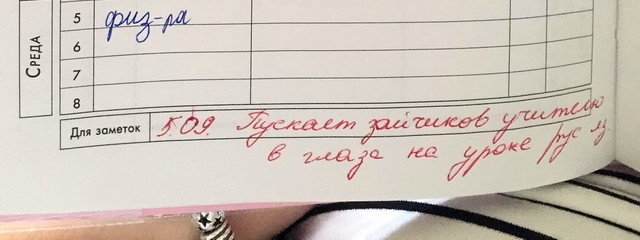 СРЕДА
5 физ-ра
6
7
8
Для заметок 5.09. Пускает зайчиков учителю
в глаза на уроке рус яз.